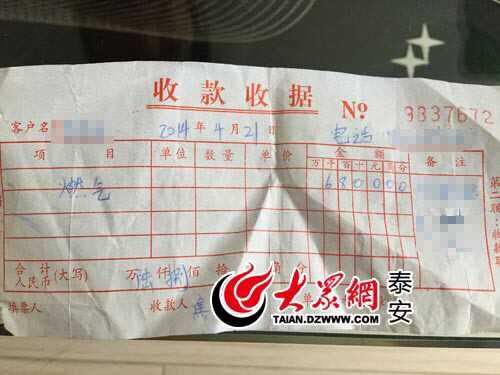 收款收据 № 9837672
客户名 2014年4月21日 电话
项目 单位 数量 单价 金额 备注
万千百十元角分
燃气 680000
第二联
合计人民币(大写) 万陆仟捌佰拾
填票人 收款人 单
大众網 泰安
TAIAN.DZWWW.COM